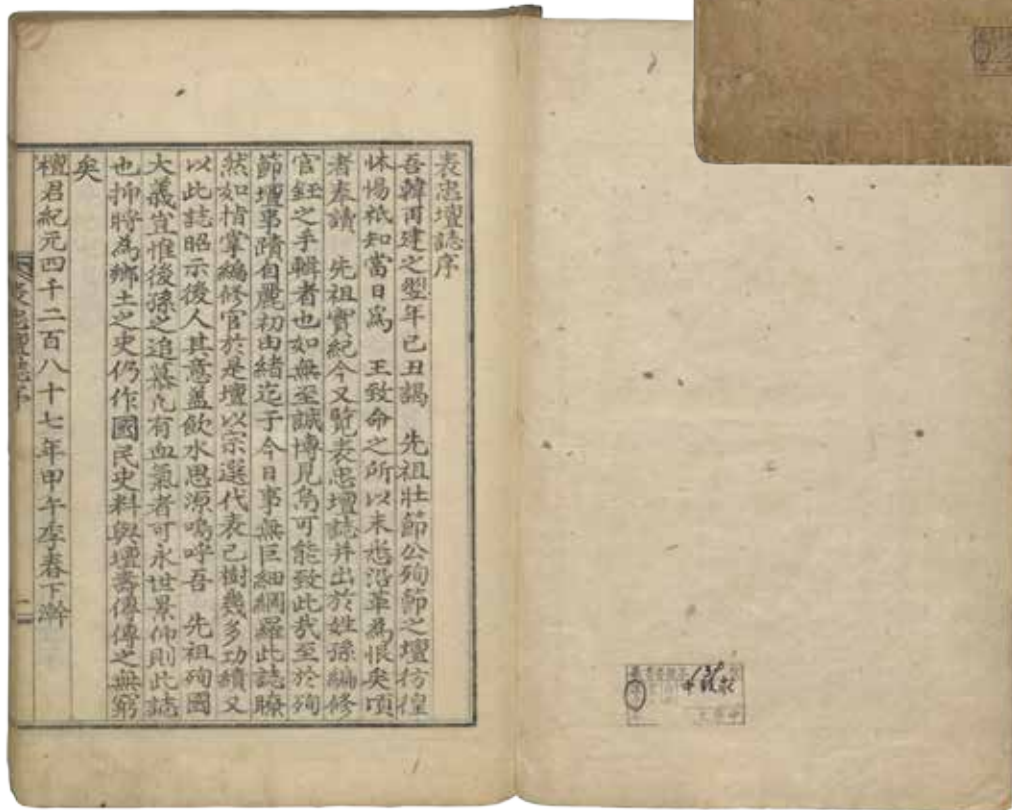 表忠壇誌序
吾韓再建之翌年己丑謁 先祖壯節公殉節之壇彷徨
怵惕祇知當日爲 王致命之所以未悉沿革爲恨矣頃
者奉讀 先祖實紀今又覽表忠壇誌并出於姓孫編修
官鈺之手輯者也如無至誠博見烏可能致此哉至於殉
節壇事蹟自麗初由緖迄于今日事無巨細網羅此誌瞭
然如指掌編修官於是壇以宗選代表已樹幾多功績又
以此誌昭示後人其意盖飮水思源嗚呼吾 先祖殉國
大義豈惟後孫之追慕凢有血氣者可永世景仰則此誌
也抑將爲鄕土之史仍作國民史料與壇壽傳傳之無窮
矣
檀君紀元四千二百八十七年甲午季春下澣
表忠壇誌序